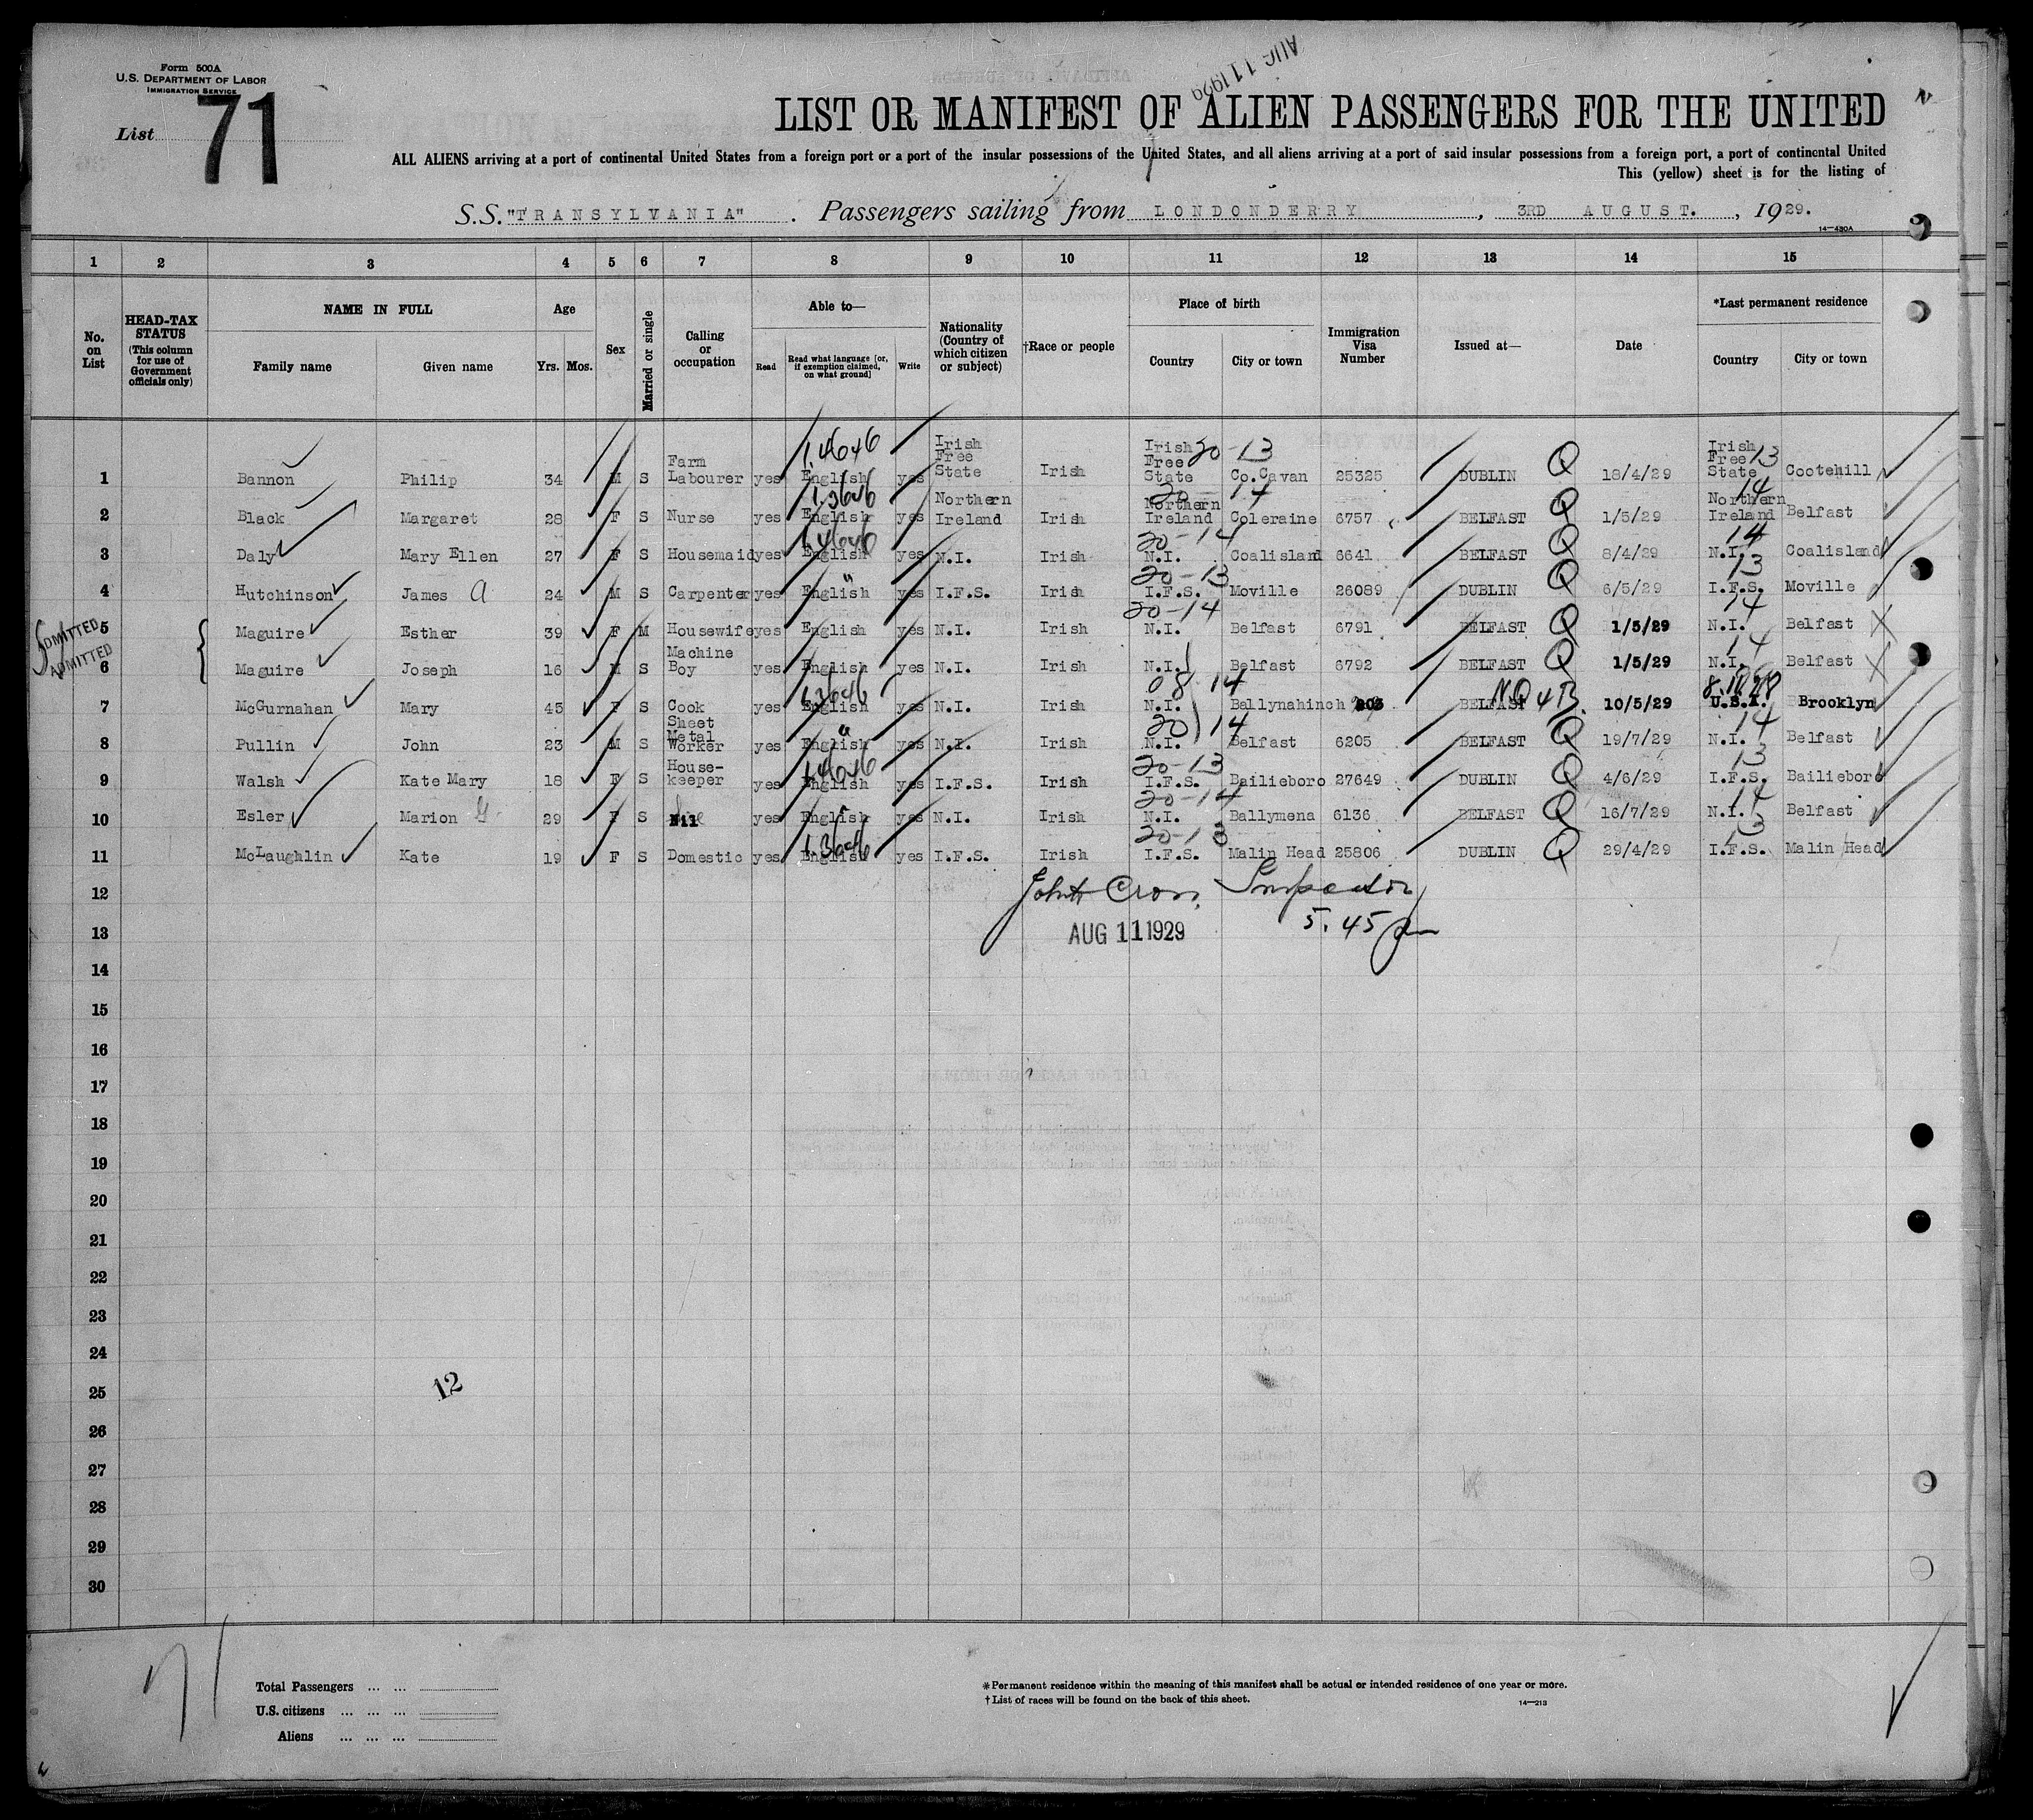 Form 500A
U.S. DEPARTMENT OF LABOR
IMMIGRATION SERVICE
List 71
AUG 11 1929
LIST OR MANIFEST OF ALIEN PASSENGERS FOR THE UNITED
ALL ALIENS arriving at a port of continental United States from a foreign port or a port of the insular possessions of the United States, and all aliens arriving at a port of said insular possessions from a foreign port, a port of continental United
This (yellow) sheet is for the listing of
S.S. "TRANSYLVANIA" . Passengers sailing from LONDONDERRY , 3RD AUGUST. , 1929.
14—430A
1 2 3 4 5 6 7 8 9 10 11 12 13 14 15
No. on List HEAD-TAX STATUS (This column for use of Government officials only) NAME IN FULL Family name Given name Age Yrs. Mos. Sex Married or single Calling or occupation Able to— Read Read what language [or, if exemption claimed, on what ground] Write Nationality (Country of which citizen or subject) †Race or people Place of birth Country City or town Immigration Visa Number Issued at— Date *Last permanent residence Country City or town
1 Bannon Philip 34 M S Farm Labourer yes English yes Irish Free State Irish Irish Free State 20-13 Co.Cavan 25325 DUBLIN Q 18/4/29 Irish Free State 13 Cootehill
2 Black Margaret 28 F S Nurse yes English yes Northern Ireland Irish Northern Ireland 20-14 Coleraine 6757 BELFAST Q 1/5/29 Northern Ireland 14 Belfast
3 Daly Mary Ellen 27 F S Housemaid yes English yes N.I. Irish N.I. 20-14 Coalisland 6641 BELFAST Q 8/4/29 N.I. 14 Coalisland
4 Hutchinson James A 24 M S Carpenter yes English " yes I.F.S. Irish I.F.S. 20-13 Moville 26089 DUBLIN Q 6/5/29 I.F.S. 13 Moville
ADMITTED 5 Maguire Esther 39 F M Housewife yes English yes N.I. Irish N.I. 20-14 Belfast 6791 BELFAST Q 1/5/29 N.I. 14 Belfast X
ADMITTED 6 Maguire Joseph 16 M S Machine Boy yes English yes N.I. Irish N.I. Belfast 6792 BELFAST Q 1/5/29 N.I. 14 Belfast X
7 McGurnahan Mary 45 F S Cook yes English yes N.I. Irish N.I. 08-14 Ballynahinch 203 BELFAST NQ 4B 10/5/29 U.S.A. Brooklyn
8 Pullin John 23 M S Sheet Metal Worker yes English " yes N.I. Irish N.I. 20 14 Belfast 6205 BELFAST Q 19/7/29 N.I. 14 Belfast
9 Walsh Kate Mary 18 F S House-keeper yes English yes I.F.S. Irish I.F.S. 20-13 Bailieboro 27649 DUBLIN Q 4/6/29 I.F.S. 13 Bailieboro
10 Esler Marion G 29 F S Nil yes English yes N.I. Irish N.I. 20-14 Ballymena 6136 BELFAST Q 16/7/29 N.I. 14 Belfast
11 McLaughlin Kate 19 F S Domestic yes English yes I.F.S. Irish I.F.S. 20-13 Malin Head 25806 DUBLIN Q 29/4/29 I.F.S. 13 Malin Head
12 Cron, Inspector
13 AUG 11 1929 5.45 pm
14
15
16
17
18
19
20
21
22
23
24
25 12
26
27
28
29
30
71
Total Passengers ... ...
U.S. citizens ... ... ...
Aliens ... ... ...
*Permanent residence within the meaning of this manifest shall be actual or intended residence of one year or more.
†List of races will be found on the back of this sheet.
14—213